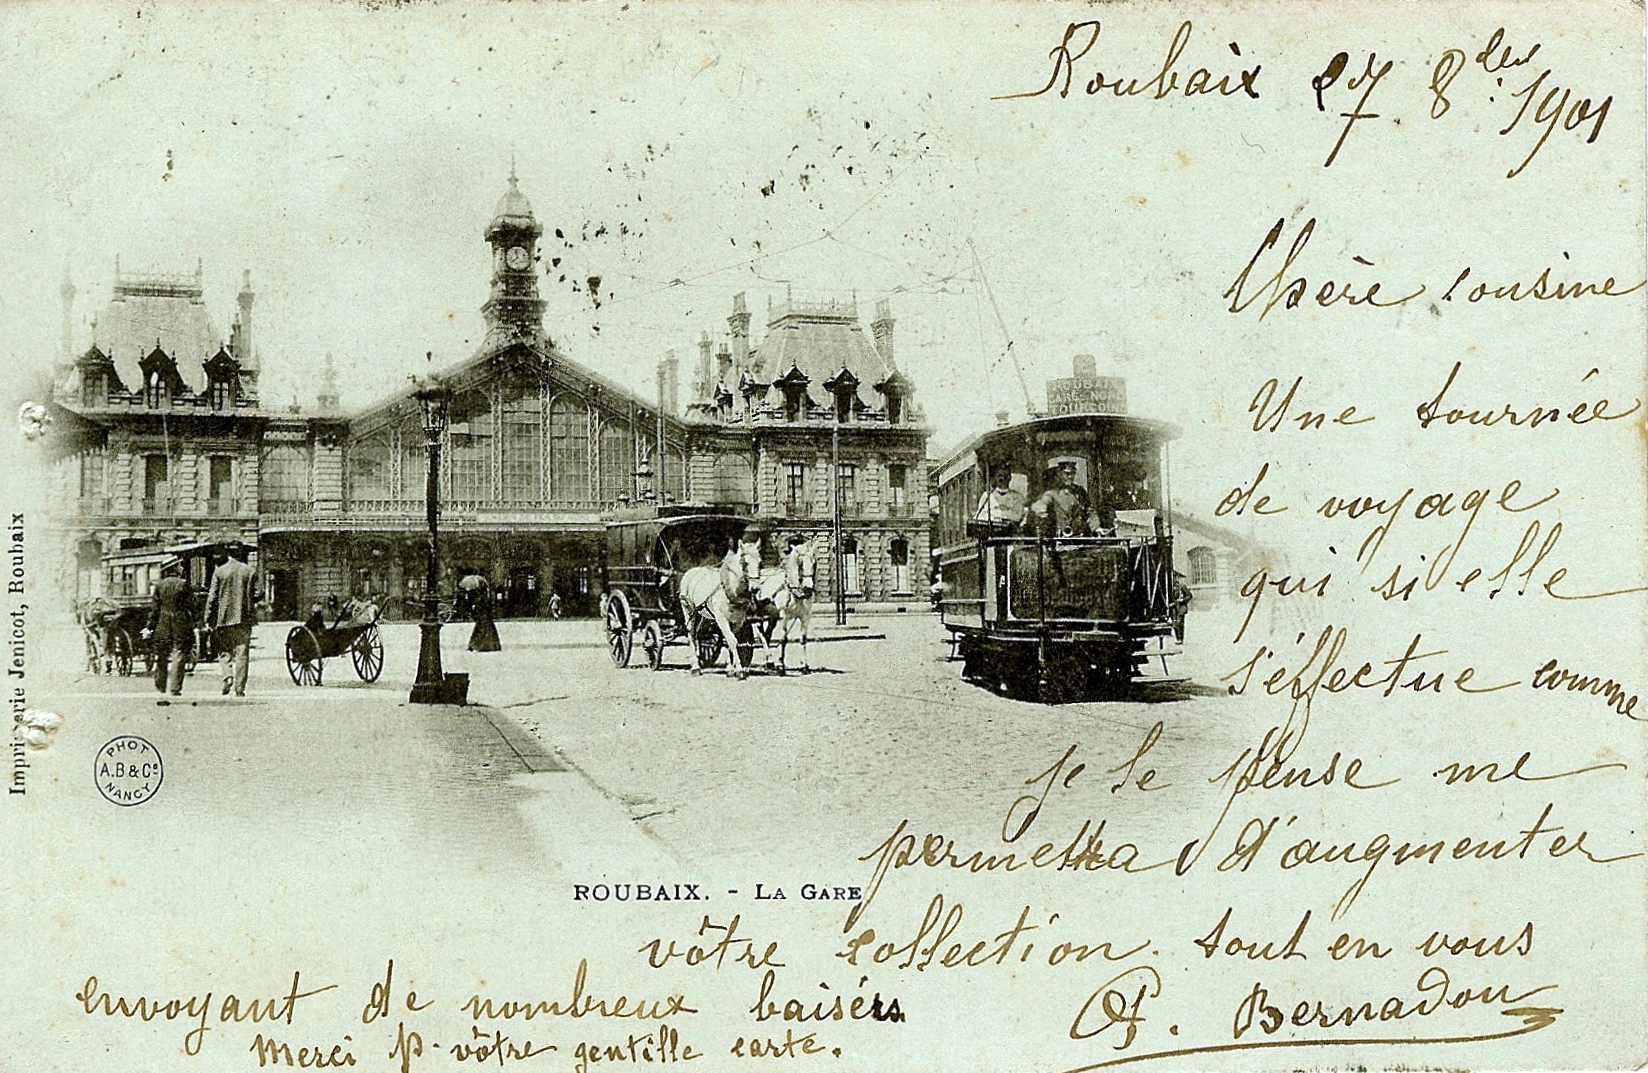 Roubaix 27. 8bre 1901
Chère cousine
Une tournée
de voyage
qui si elle
s'éffectue comme
je le pense me
permettra d'augmenter
vôtre collection. tout en vous
envoyant de nombreux baisérs
Merci p. vôtre gentille carte.
Bernadou
ROUBAIX. - LA GARE
Imprimerie Jenicot, Roubaix
PHOT
A.B & Cº
NANCY
ROUBAIX